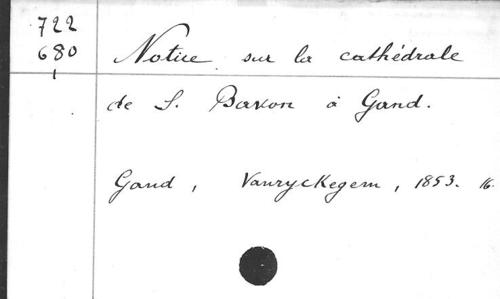 722
680
1
Notice sur la cathédrale
de S. Bavon à Gand.
Gand, Vanryckegem, 1853. 16.